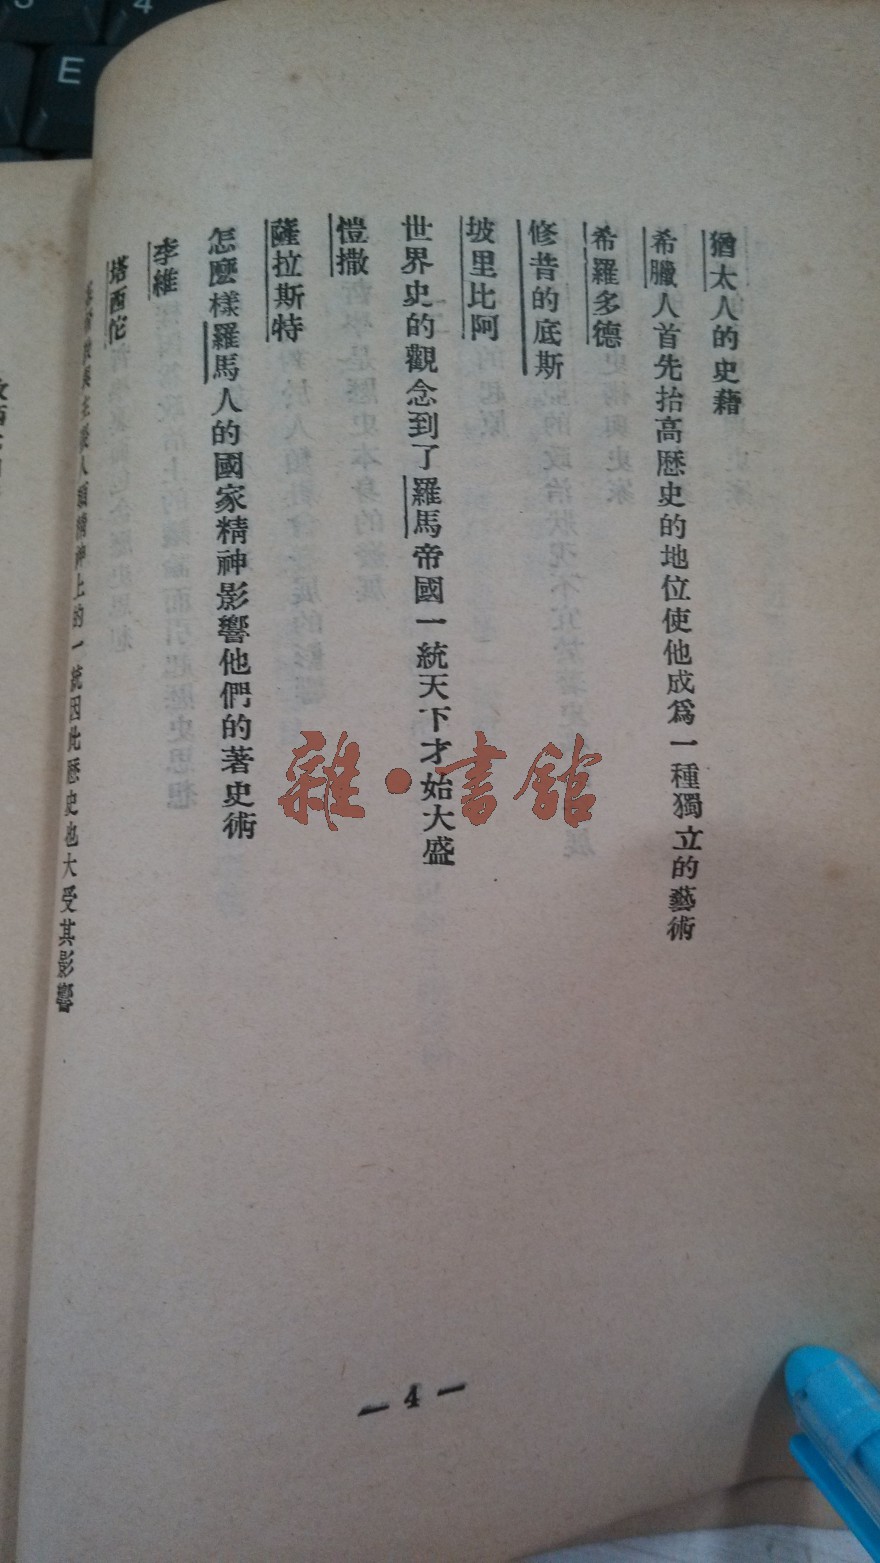 猶太人的史藉
希臘人首先抬高歷史的地位使他成爲一種獨立的藝術
希羅多德
修昔的底斯
坡里比阿
世界史的觀念到了羅馬帝國一統天下才始大盛
愷撒
薩拉斯特
怎麼樣羅馬人的國家精神影響他們的著史術
李維
塔西佗
人類精神上的一統因此歷史也大受其影響
— 4 —
雜·書館
E
4